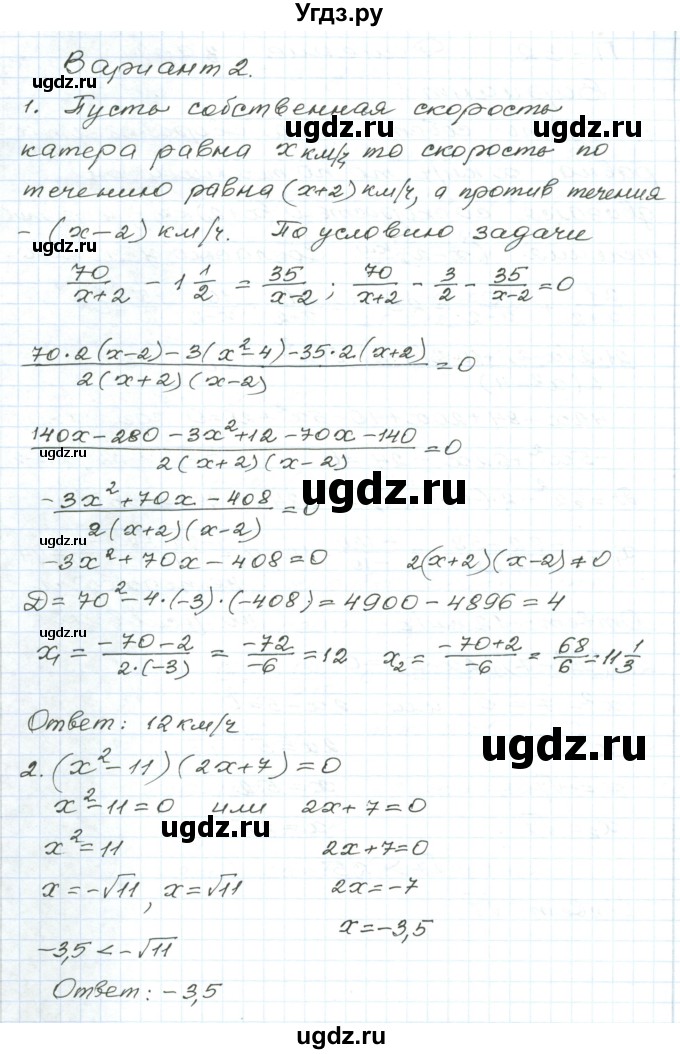 Угдз.ру
Вариант 2.
ugdz.ru
1. Пусть собственная скорость
ugdz.ru ugdz.ru
катера равна x км/ч, то скорость по
течению равна (x+2) км/ч, а против течения
- (x-2) км/ч. По условию задачи
ugdz.ru
70/(x+2) - 1 1/2 = 35/(x-2); 70/(x+2) - 3/2 - 35/(x-2) = 0
(70·2(x-2) - 3(x²-4) - 35·2(x+2))/(2(x+2)(x-2)) = 0
(140x - 280 - 3x² + 12 - 70x - 140)/(2(x+2)(x-2)) = 0
ugdz.ru
(-3x² + 70x - 408)/(2(x+2)(x-2)) = 0
ugdz.ru
ugdz.ru
-3x² + 70x - 408 = 0 2(x+2)(x-2) ≠ 0
Д = 70² - 4·(-3)·(-408) = 4900 - 4896 = 4
ugdz.ru
x₁ = (-70-2)/(2·(-3)) = -72/-6 = 12 x₂ = (-70+2)/-6 = 68/6 = 11 1/3
Ответ: 12 км/ч
ugdz.ru
2. (x²-11)(2x+7) = 0
x²-11 = 0 или 2x+7 = 0
ugdz.ru
x² = 11 2x+7 = 0
x = -√11, x = √11 2x = -7
x = -3,5
ugdz.ru
-3,5 < -√11
Ответ: -3,5
ugdz.ru
ugdz.ru